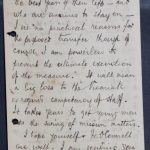 the best years of their life - and
who are anxious to stay on.
I see no practical reasons for
the proposed transfer though of
course, I am powerless to
prevent the ultimate execution
of the measure. It will mean
a big loss to the
competency of staff.
It takes years to get any man
on the of mission matters.
I hope yourself &
are well. I am sending you